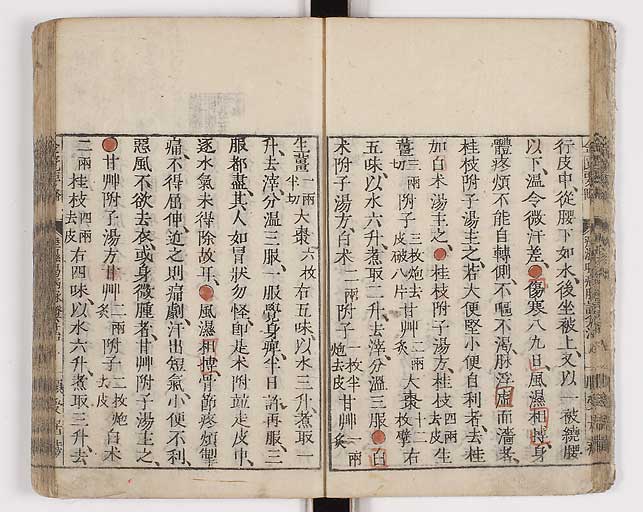 行皮中、從腰下如水、後坐被上、又以一被繞腰
以下、溫令微汗差、傷寒八九日、風濕相搏、身
體疼煩、不能自轉側、不嘔不渴、脉浮虛而濇者、
桂枝附子湯主之、若大便堅、小便自利者、去桂
加白朮湯主之、桂枝附子湯方桂枝四兩去皮生
薑三兩切附子三枚炮去皮破八片甘艸二兩炙大棗十二枚擘右
五味、以水六升、煮取二升、去滓、分溫三服、白
朮附子湯方、白朮二兩附子一枚半炮去皮甘艸一兩炙
生薑一兩半切大棗六枚右五味、以水三升、煮取一
升、去滓、分溫三服、一服覺身痺、半日許再服、三
服都盡、其人如冒狀、勿怪、即是朮附竝走皮中、
逐水氣、未得除故耳、風濕相搏、骨節疼煩、掣
痛、不得屈伸、近之則痛劇、汗出短氣、小便不利、
惡風不欲去衣、或身微腫者、甘艸附子湯主之、
甘艸附子湯方甘艸二兩炙附子二枚炮去皮白朮
二兩桂枝四兩去皮右四味、以水六升、煮取三升、去